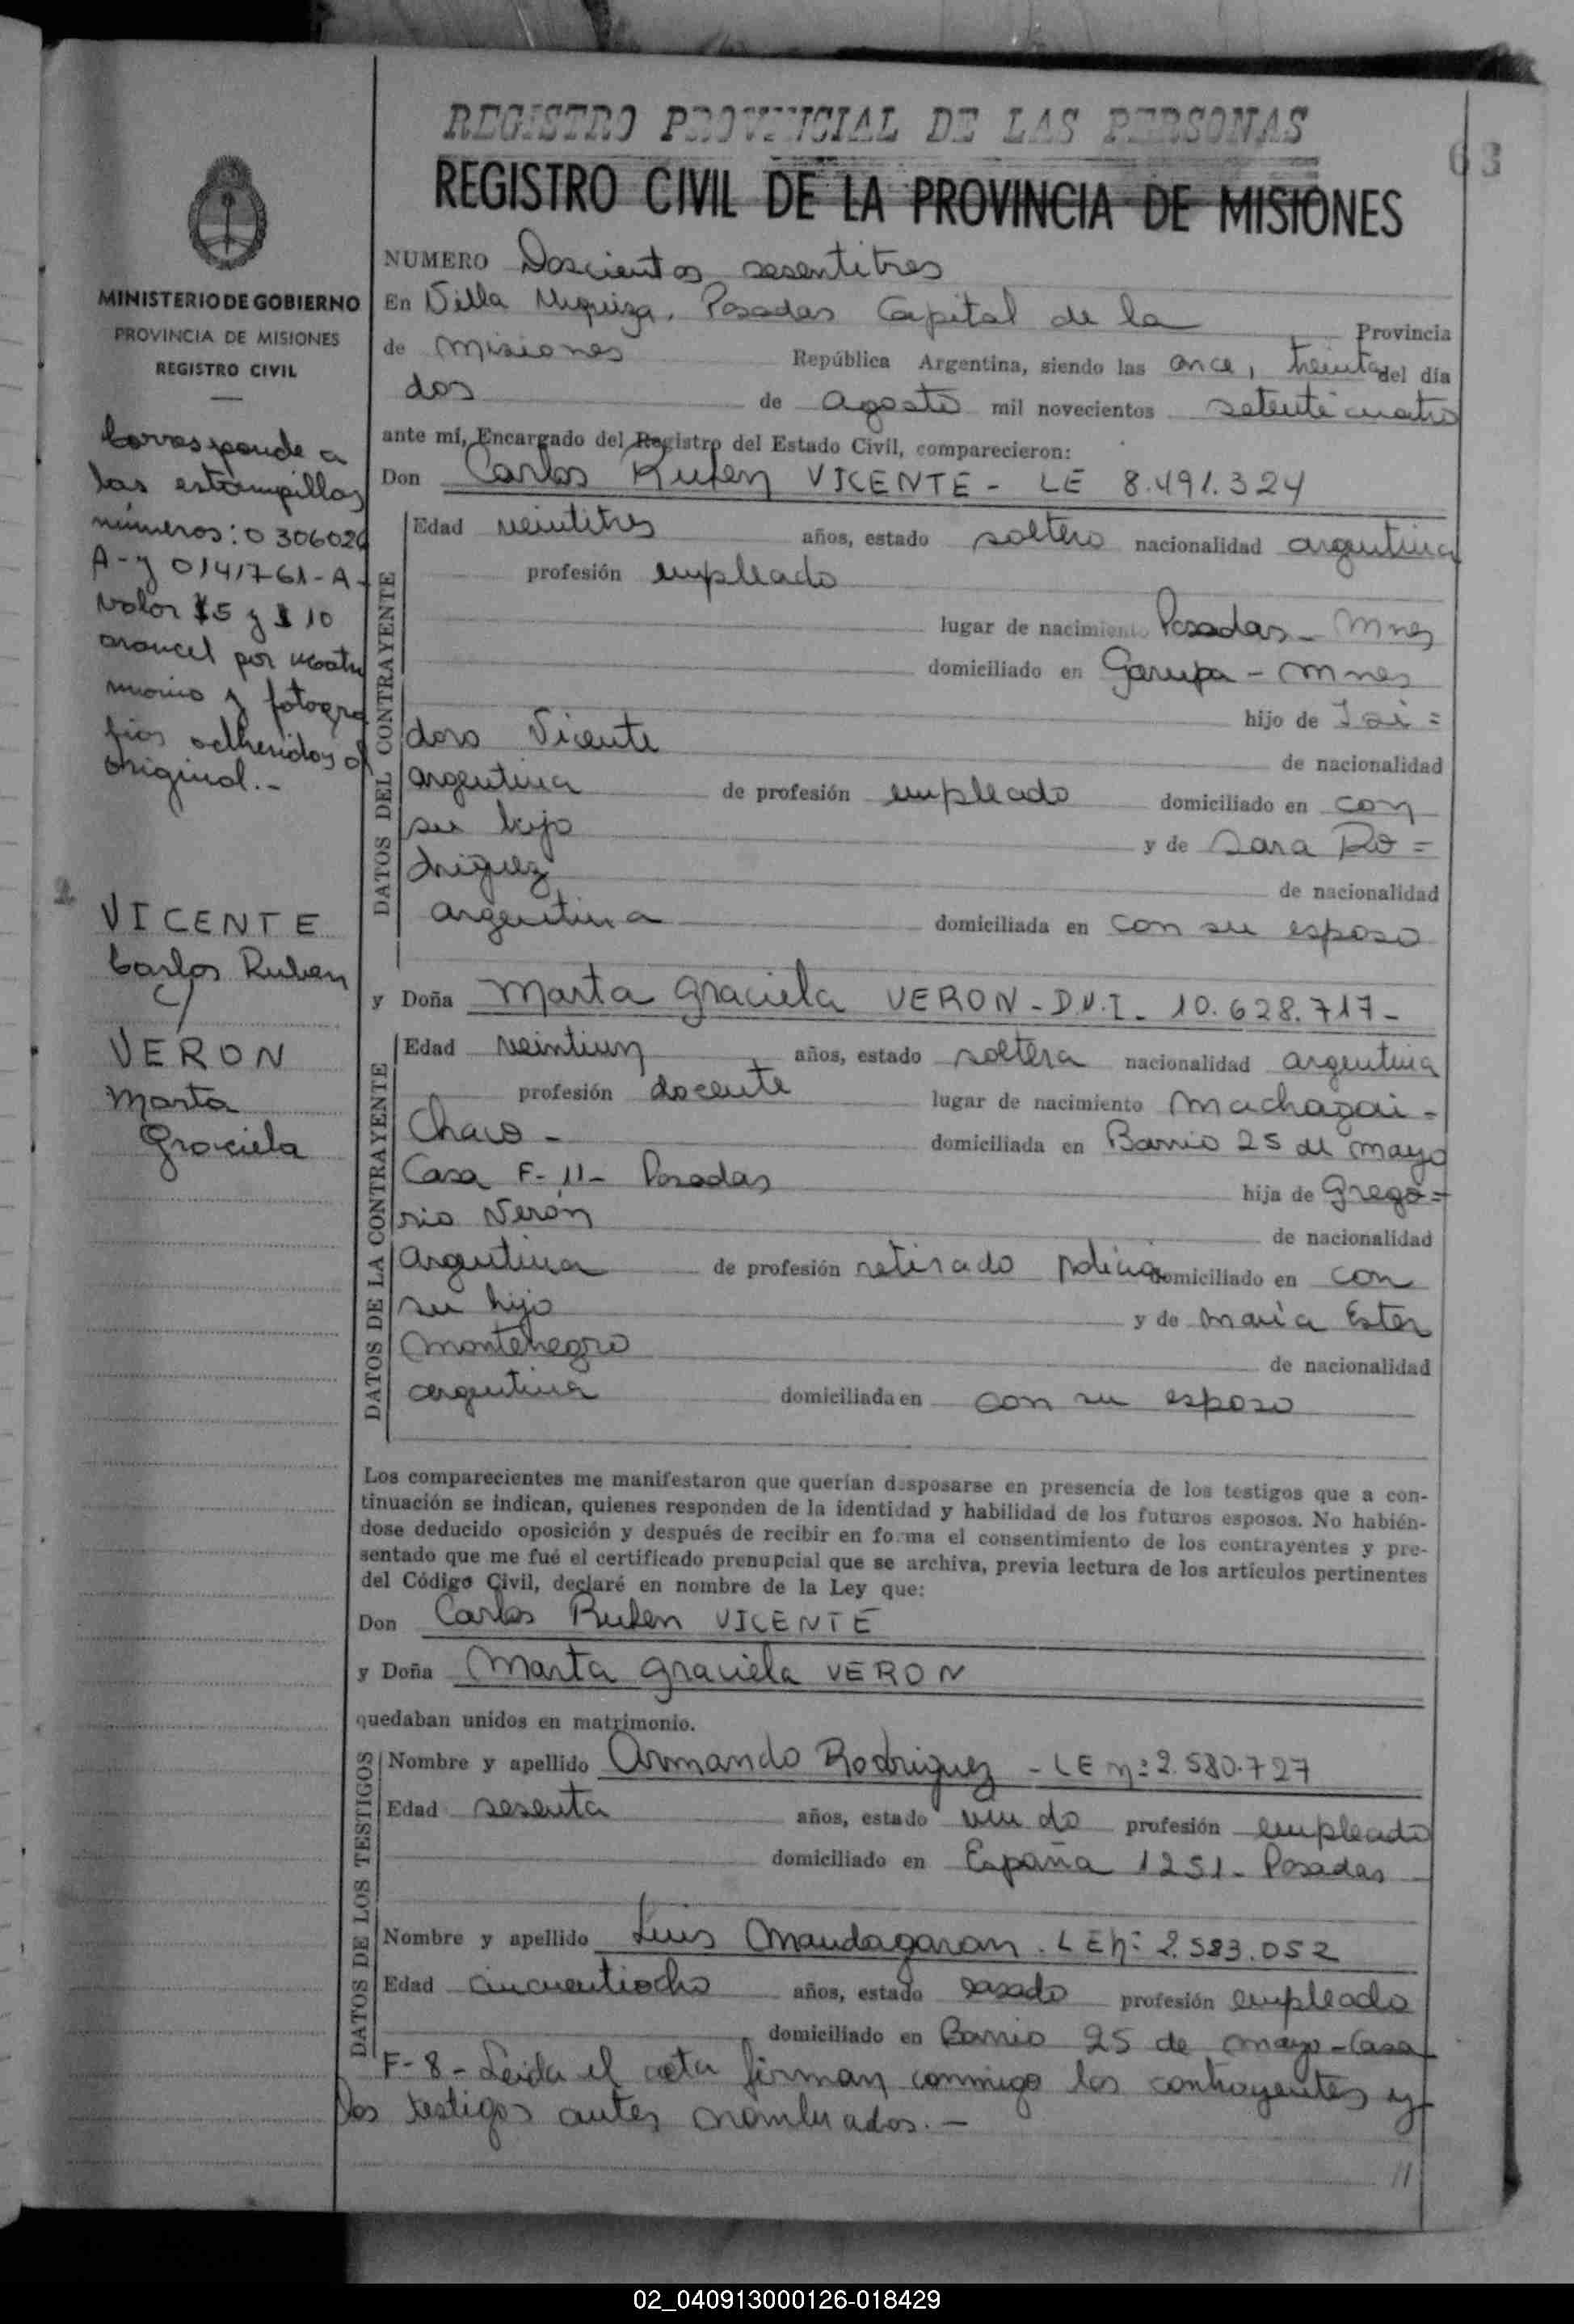 REGISTRO PROVINCIAL DE LAS PERSONAS
63
REGISTRO CIVIL DE LA PROVINCIA DE MISIONES
MINISTERIO DE GOBIERNO
PROVINCIA DE MISIONES
REGISTRO CIVIL
Corresponde a
las estampillas
números: 0306020
A - y 0141761 - A -
valor $5 y $ 10
arancel por matri
monio y fotogra
fias adheridas al
original.-
VICENTE
Carlos Ruben
c/
VERON
Marta
Graciela
NUMERO Doscientos sesentitres
En Villa Urquiza, Posadas Capital de la Provincia
de Misiones República Argentina, siendo las once, treinta del día
dos de agosto mil novecientos setenticuatro
ante mí, Encargado del Registro del Estado Civil, comparecieron:
Don Carlos Ruben VICENTE - LE 8.491.324
DATOS DEL CONTRAYENTE
Edad veintitres años, estado soltero nacionalidad argentina
profesión empleado
lugar de nacimiento Posadas - Mnes
domiciliado en Garupa - Mnes
hijo de Isi =
doro Vicente
de nacionalidad
argentina de profesión empleado domiciliado en con
su hijo y de Sara Ro =
driguez
de nacionalidad
argentina domiciliada en con su esposo
y Doña Marta Graciela VERON - D.N.I. 10.628.717 -
DATOS DE LA CONTRAYENTE
Edad veintiun años, estado soltera nacionalidad argentina
profesión docente lugar de nacimiento Machagai -
Chaco - domiciliada en Barrio 25 de mayo
Casa F- 11 - Posadas hija de Grego =
rio Verón
de nacionalidad
argentina de profesión retirado policia domiciliado en con
su hijo y de María Ester
Montenegro
de nacionalidad
argentina domiciliada en con su esposo
Los comparecientes me manifestaron que querían desposarse en presencia de los testigos que a con-
tinuación se indican, quienes responden de la identidad y habilidad de los futuros esposos. No habién-
dose deducido oposición y después de recibir en forma el consentimiento de los contrayentes y pre-
sentado que me fué el certificado prenupcial que se archiva, previa lectura de los artículos pertinentes
del Código Civil, declaré en nombre de la Ley que:
Don Carlos Ruben VICENTE
y Doña Marta Graciela VERON
quedaban unidos en matrimonio.
DATOS DE LOS TESTIGOS
Nombre y apellido Armando Rodriguez - LE n: 2.580.727
Edad sesenta años, estado viudo profesión empleado
domiciliado en España 1251 - Posadas
Nombre y apellido Luis Mandagaran. LE n: 2.583.052
Edad cincuentiocho años, estado casado profesión empleado
domiciliado en Barrio 25 de mayo - Casa
F- 8 - Leida el acta firman conmigo los contrayentes y
los testigos antes nombrados. -
//
02_040913000126-018429